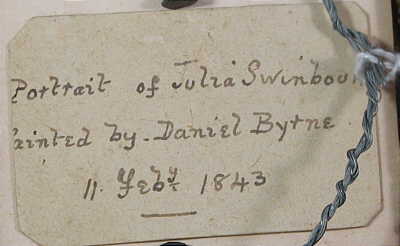 Portrait of Julia Swinbour
ainted by. Daniel Byrne
11. Feby. 1843